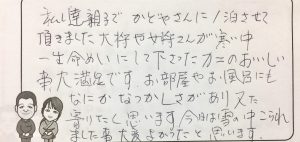 私し達親子で かどやさんに1泊させて
頂きました 大将や女将さんが寒い中
一生命めいにして下さったカニのおいしい
事大満足です。お部屋やお風呂にも
なにかなつかしさがあり又た
寄りたく思います 今日は雪の中こられ
ました事大変よかったと思います。